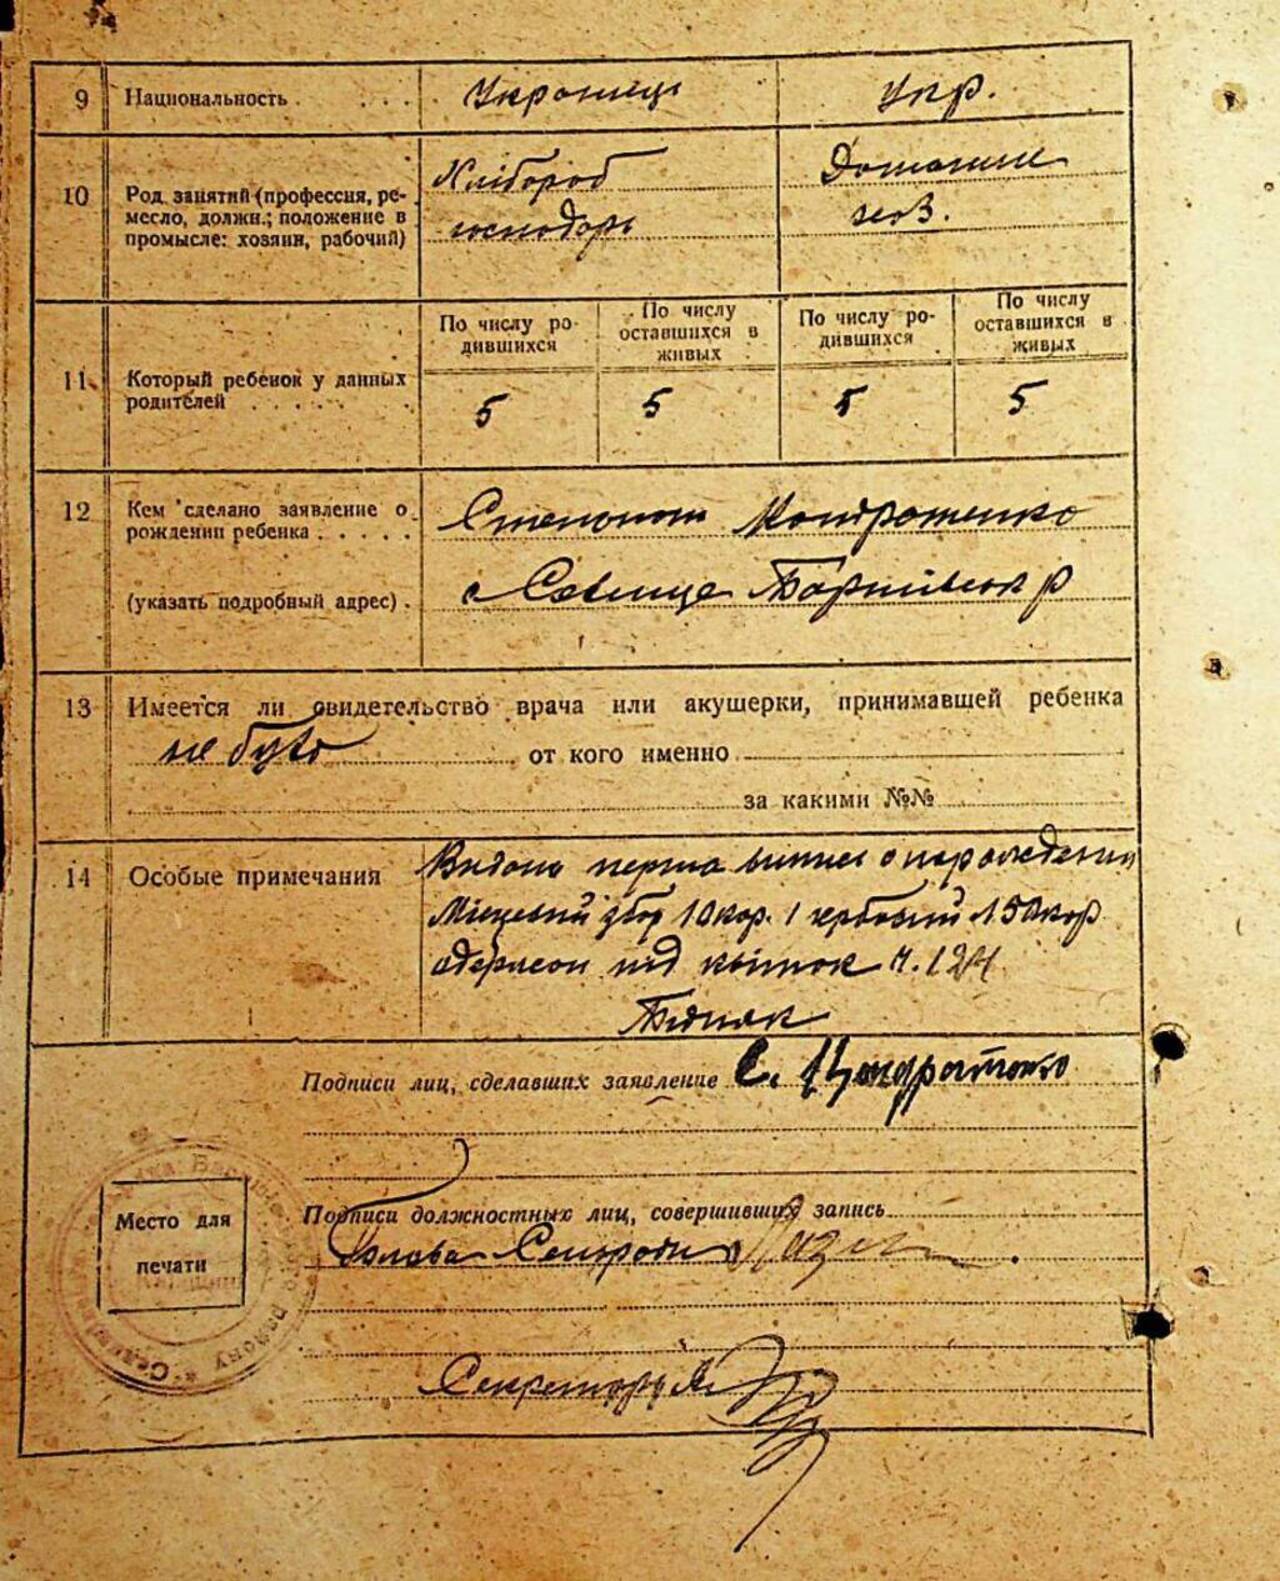 9 Национальность . . . . . Украинец Укр.
10 Род занятий (профессия, ре-
месло, должн.; положение в
промысле: хозяин, рабочий)
Хлібороб
господарь
Домашнє
хоз.
11 Который ребенок у данных
родителей . . . . . .
По числу ро-
дившихся
По числу
оставшихся в
живых
По числу ро-
дившихся
По числу
оставшихся в
живых
5 5 5 5
12 Кем сделано заявление о
рождении ребенка . . . . .
(указать подробный адрес) .
Степаном Кондратенко
с р
13 Имеется ли свидетельство врача или акушерки, принимавшей ребенка
не було от кого именно
за какими №№
14 Особые примечания
перша о
Місцевий збір 10 кор. 1 150 кор
під квіток ч.
Подписи лиц, сделавших заявление С. Кондратенко
Место для
печати
Подписи должностных лиц, совершивших запись
Голова Сельради
Секретарь